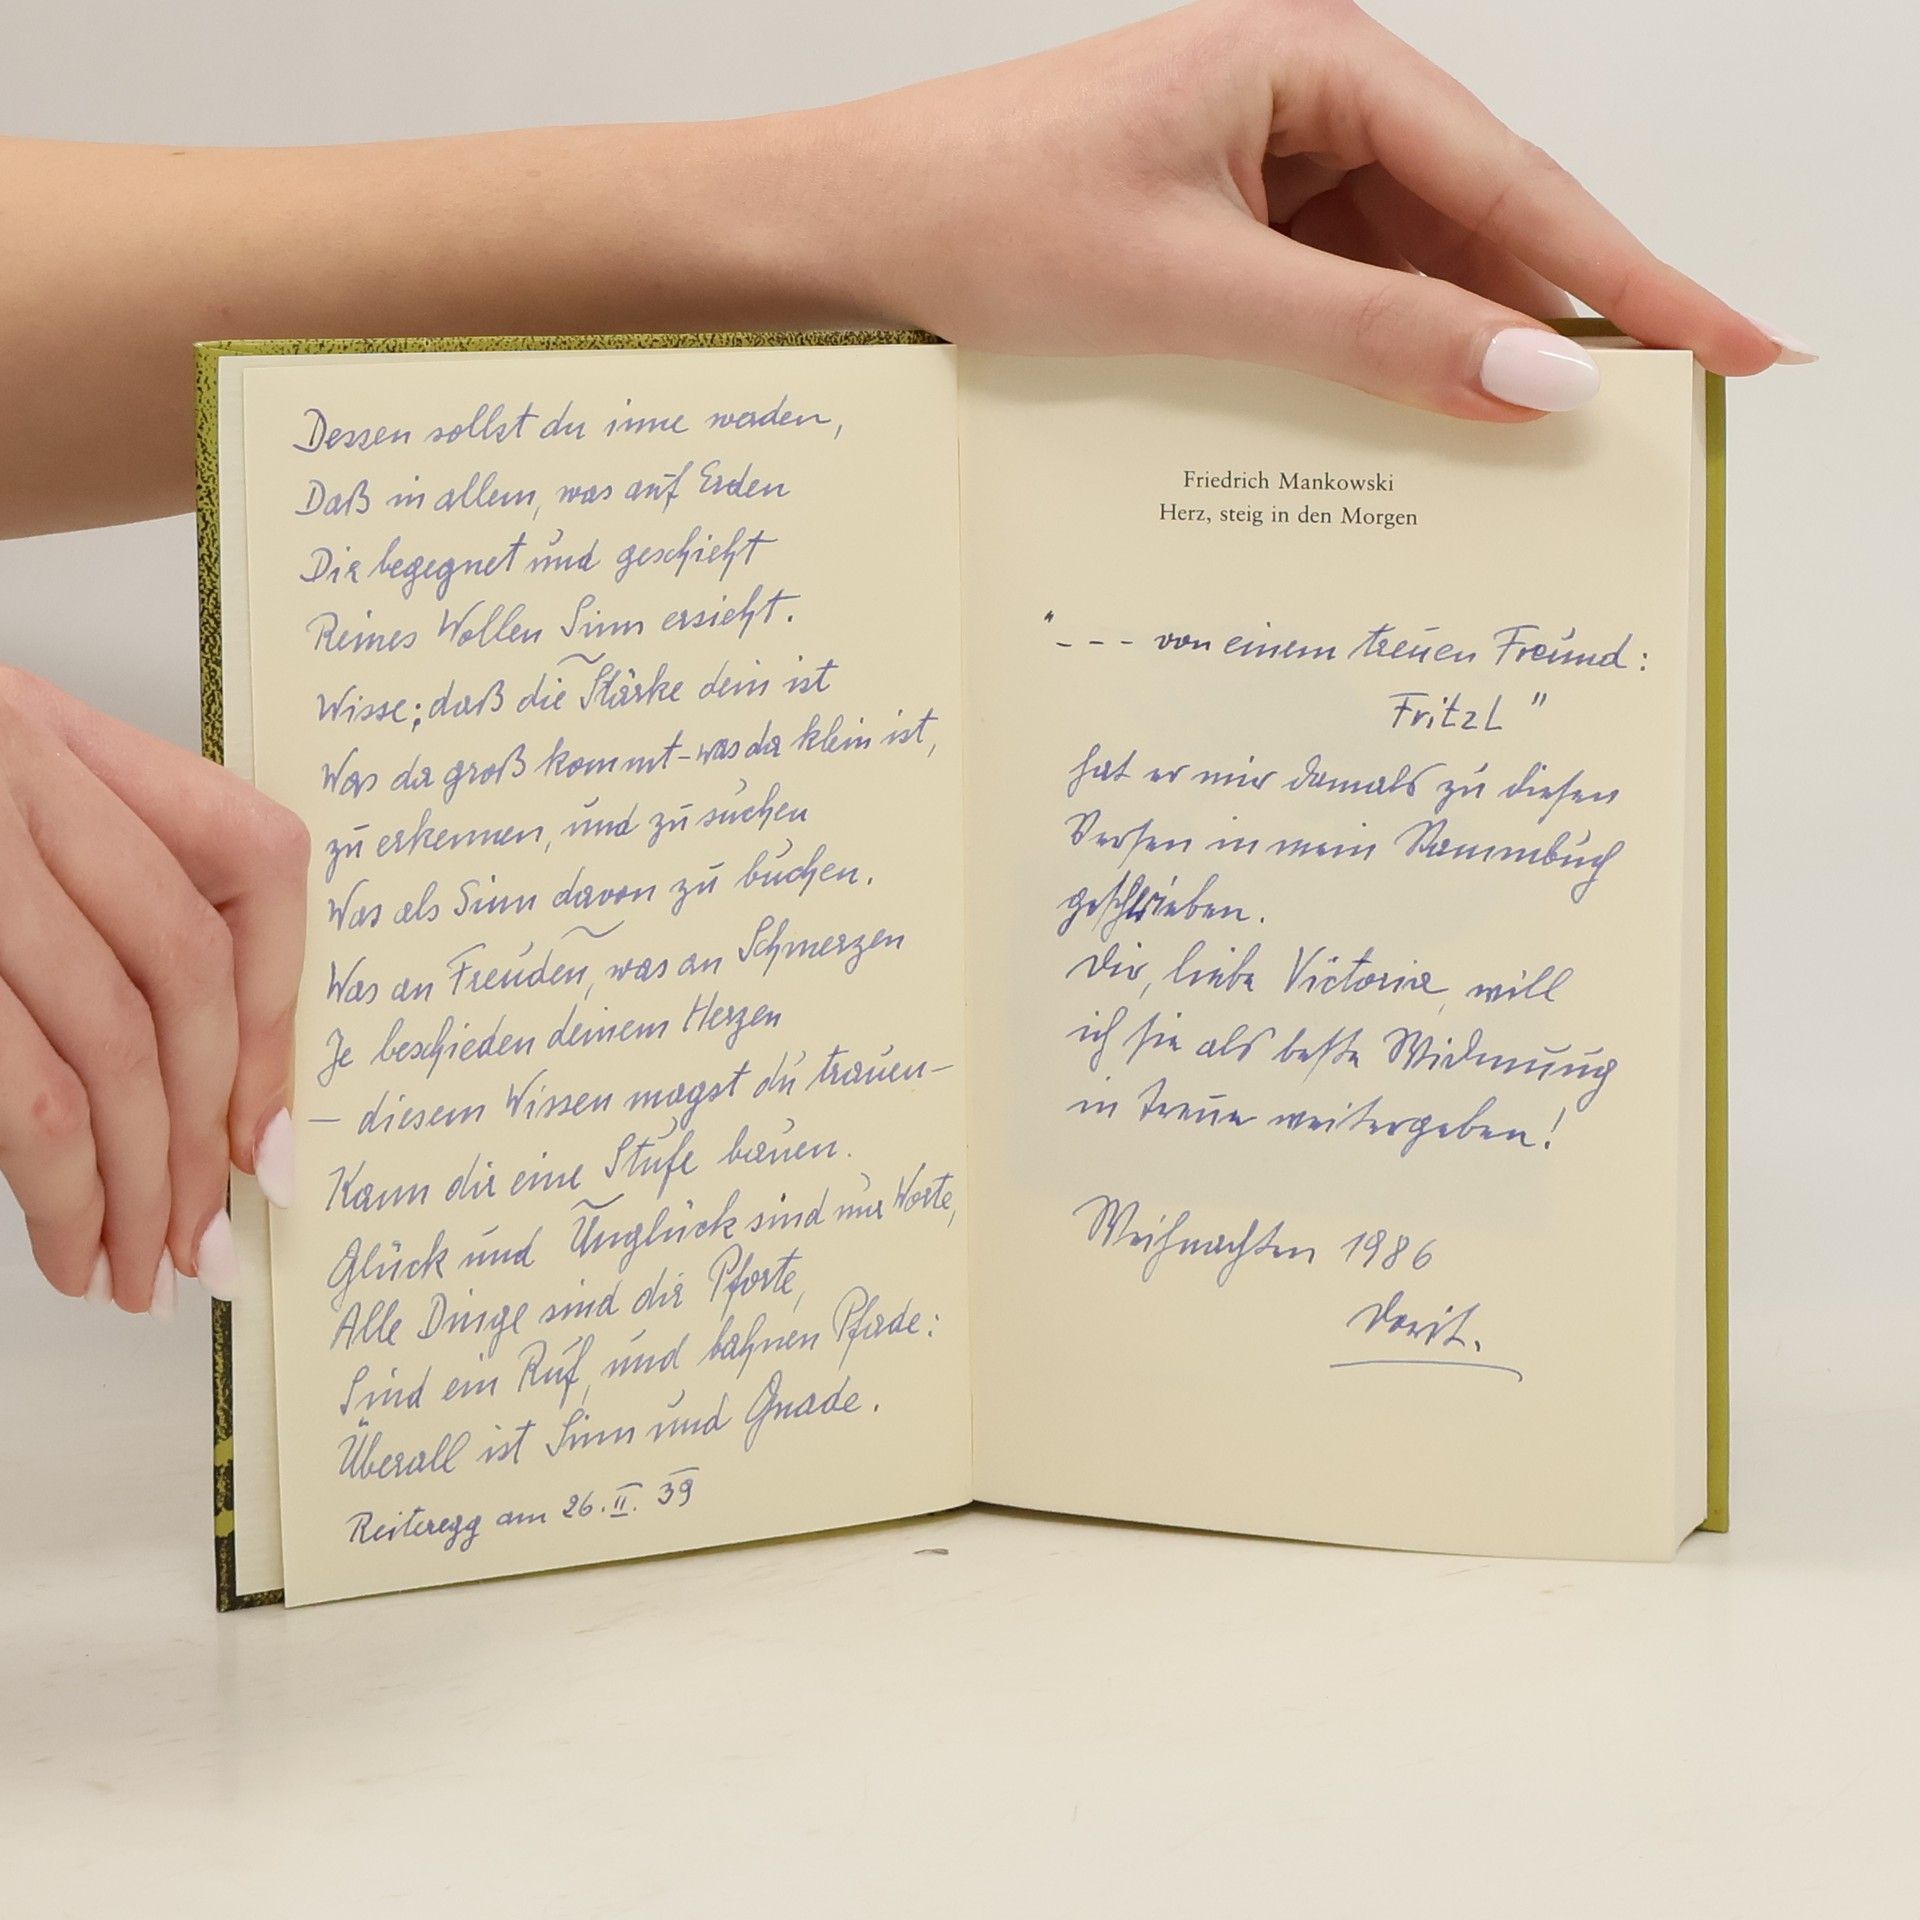 Dessen sollst du inne werden,
Daß in allem, was auf Erden
Dir begegnet und geschieht
Reines Wollen Sinn ersieht.
Wisse; daß die Stärke dein ist
Was da groß kommt – was da klein ist,
zu erkennen, und zu suchen
Was als Sinn davon zu buchen.
Was an Freuden, was an Schmerzen
Je beschieden deinem Herzen
– diesem Wissen magst du trauen –
Kann dir eine Stufe bauen.
Glück und Unglück sind nur Worte,
Alle Dinge sind dir Pforte,
Sind ein Ruf, und bahnen Pfade:
Überall ist Sinn und Gnade.
Reiteregg am 26. II. 39
Friedrich Mankowski
Herz, steig in den Morgen
"--- von einem treuen Freund:
Fritzl"
hat er mir damals zu diesen
Versen in mein Stammbuch
geschrieben.
Dir, liebe Victoria, will
ich sie als beste Widmung
in Treue weitergeben!
Weihnachten 1986
Dorit.